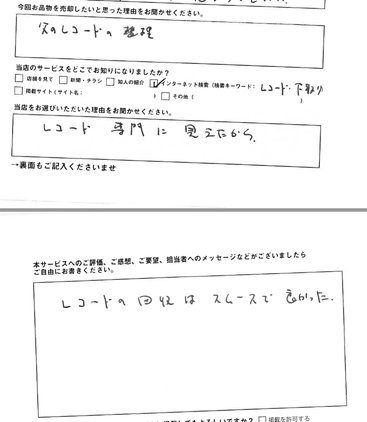 今回お品物を売却したいと思った理由をお聞かせください。
レコードの整理
当店のサービスをどこでお知りになりましたか？
店舗を見て 新聞・チラシ 知人の紹介 インターネット検索（検索キーワード： レコード・下取り
掲載サイト（サイト名： ） その他（ ）
当店をお選びいただいた理由をお聞かせください。
レコード 専門に 見えたから。
→裏面もご記入くださいませ
本サービスへのご評価、ご感想、ご要望、担当者へのメッセージなどがございましたら
ご自由にお書きください。
レコードの 回収は スムースで 良かった.
てもよろしいですか？ 掲載を許可する